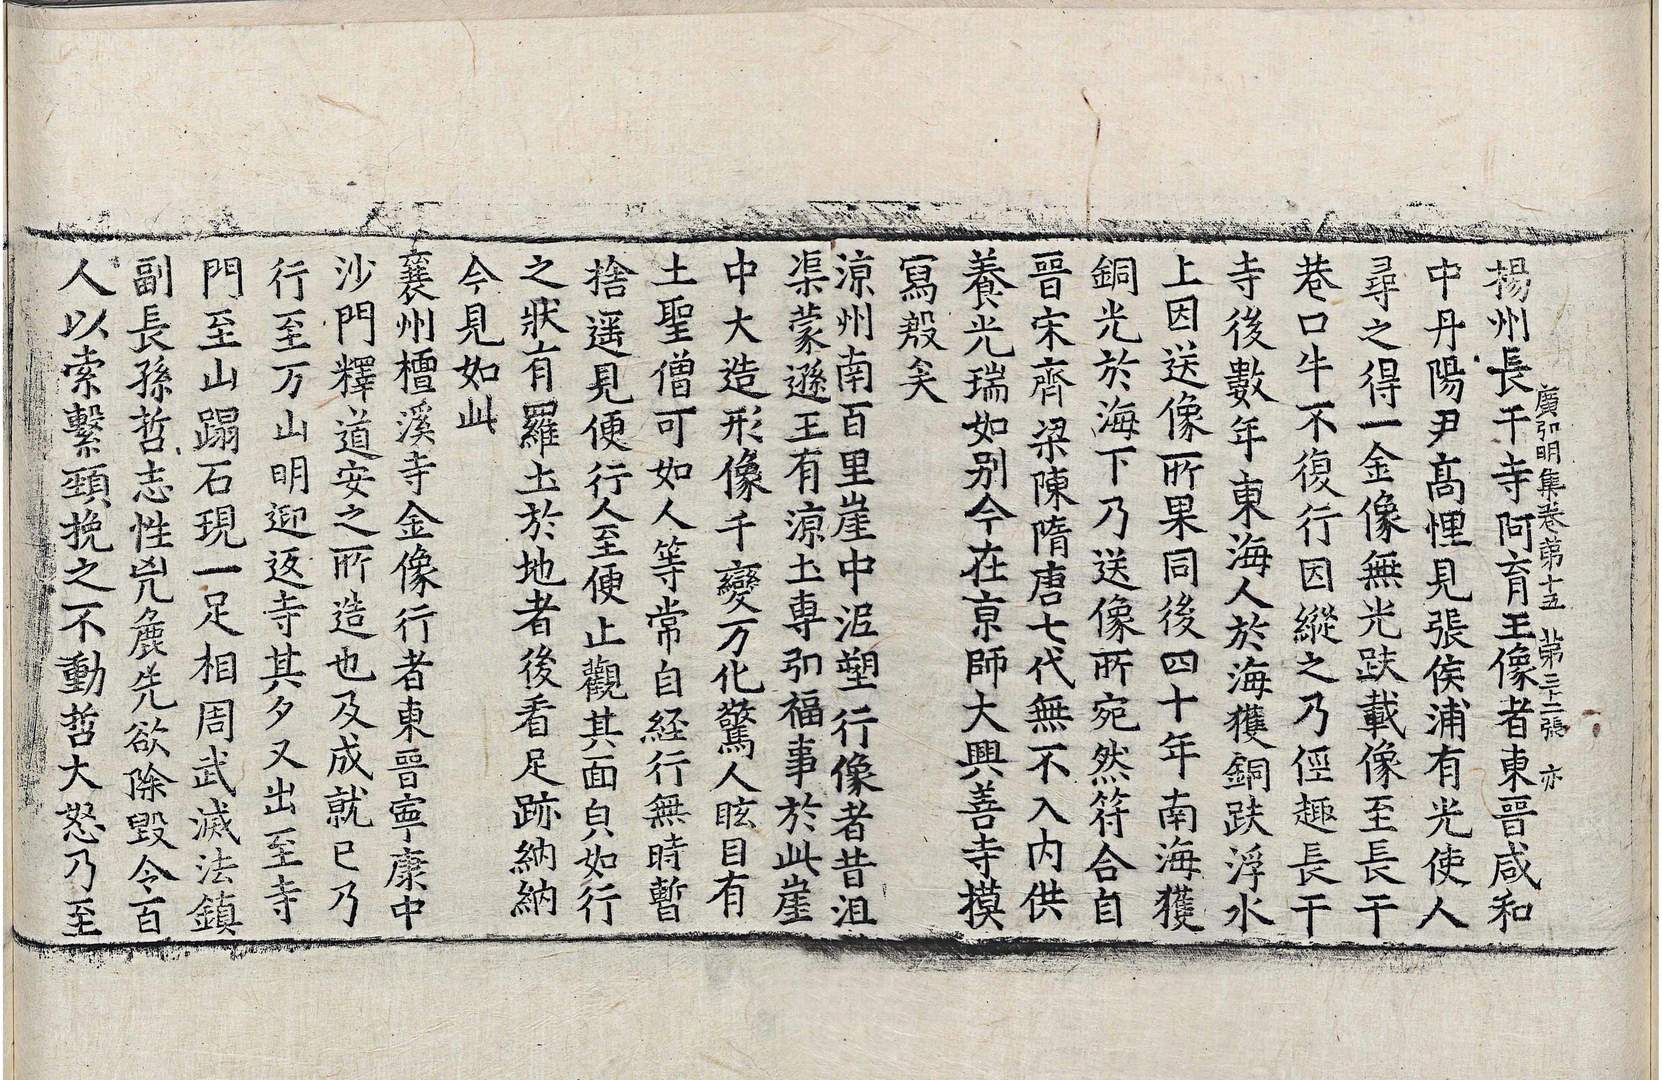 廣弘明集卷第十五　第二十二張　亦
楊州長干寺阿育王像者東晉咸和
中丹陽尹高悝見張侯浦有光使人
尋之得一金像無光趺載像至長干
巷口牛不復行因縱之乃徑趣長干
寺後數年東海人於海獲銅趺浮水
上因送像所果同後四十年南海獲
銅光於海下乃送像所宛然符合自
晉宋齊梁陳隋唐七代無不入內供
養光瑞如别今在京師大興善寺摸
寫殷矣
涼州南百里崖中泥塑行像者昔沮
渠蒙遜王有涼土專弘福事於此崖
中大造形像千變万化驚人眩目有
土聖僧可如人等常自経行無時暫
捨遥見便行人至便止觀其面皃如行
之狀有羅土於地者後看足跡納納
今見如此
襄州檀溪寺金像行者東晉寧康中
沙門釋道安之所造也及成就已乃
行至万山明迎返寺其夕又出至寺
門至山蹋石現一足相周武滅法鎮
副長孫哲志性兇麁先欲除毀令百
人以索繫頸挽之不動哲大怒乃至